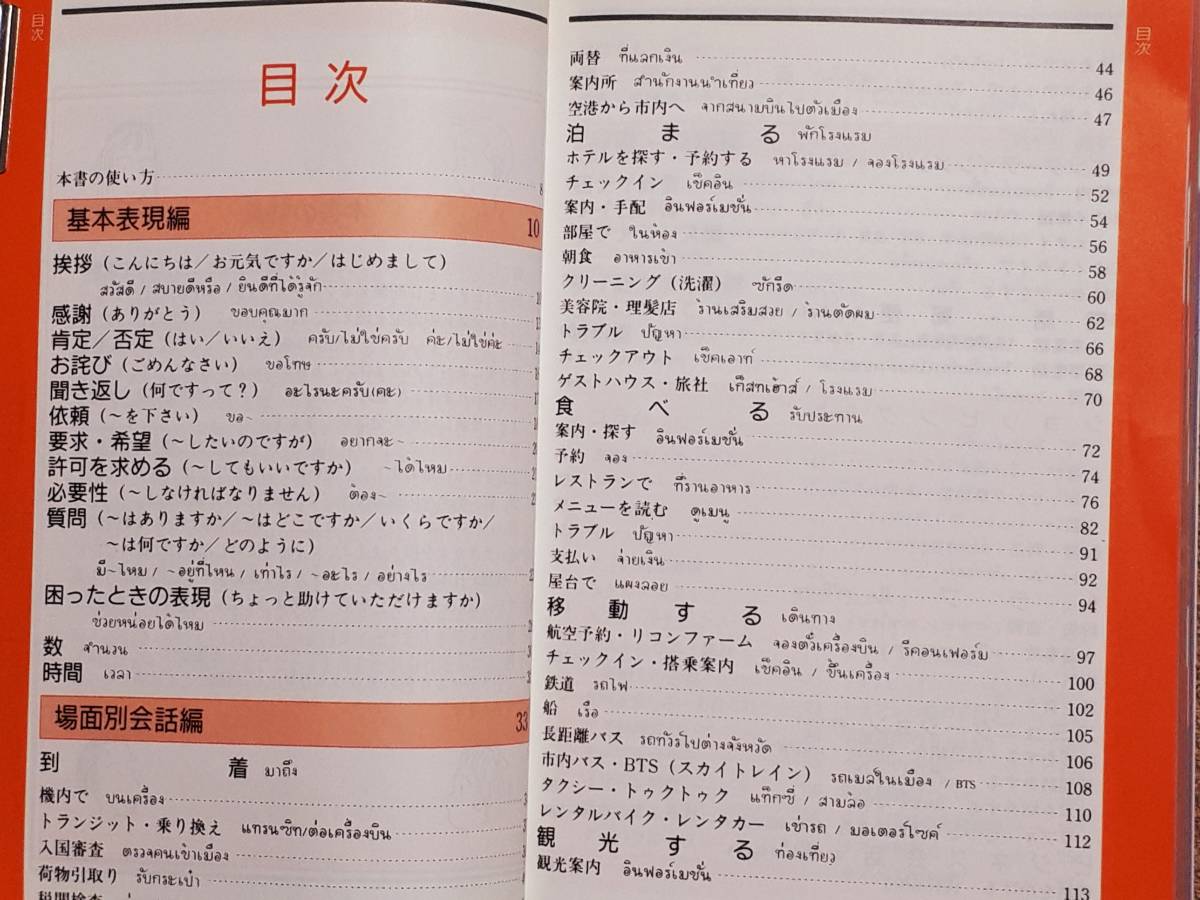 目次
目次
本書の使い方
基本表現編 10
挨拶（こんにちは／お元気ですか／はじめまして）
สวัสดี / สบายดีหรือ / ยินดีที่ได้รู้จัก
感謝（ありがとう） ขอบคุณมาก
肯定／否定（はい／いいえ） ครับ/ไม่ใช่ครับ ค่ะ/ไม่ใช่ค่ะ
お詫び（ごめんなさい） ขอโทษ
聞き返し（何ですって？） อะไรนะครับ(คะ)
依頼（〜を下さい） ขอ~
要求・希望（〜したいのですが） อยากจะ~
許可を求める（〜してもいいですか） ~ได้ไหม
必要性（〜しなければなりません） ต้อง~
質問（〜はありますか／〜はどこですか／いくらですか／
〜は何ですか／どのように）
มี~ไหม / ~อยู่ที่ไหน / เท่าไร / ~อะไร / อย่างไร
困ったときの表現（ちょっと助けていただけますか）
ช่วยหน่อยได้ไหม
数 จำนวน
時間 เวลา
場面別会話編 33
到着 มาถึง
機内で บนเครื่อง
トランジット・乗り換え แทรนซิท/ต่อเครื่องบิน
入国審査 ตรวจคนเข้าเมือง
荷物引取り รับกระเป๋า
目次
両替 ที่แลกเงิน 44
案内所 สำนักงานนำเที่ยว 46
空港から市内へ จากสนามบินไปตัวเมือง 47
泊まる พักโรงแรม
ホテルを探す・予約する หาโรงแรม / จองโรงแรม 49
チェックイン เช็คอิน 52
案内・手配 อินฟอร์เมชั่น 54
部屋で ในห้อง 56
朝食 อาหารเช้า 58
クリーニング（洗濯） ซักรีด 60
美容院・理髪店 ร้านเสริมสวย / ร้านตัดผม 62
トラブル ปัญหา 66
チェックアウト เช็คเอาท์ 68
ゲストハウス・旅社 เก็สทเฮ้าส์ / โรงแรม 70
食べる รับประทาน
案内・探す อินฟอร์เมชั่น 72
予約 จอง 74
レストランで ที่ร้านอาหาร 76
メニューを読む ดูเมนู 82
トラブル ปัญหา 91
支払い จ่ายเงิน 92
屋台で แผงลอย 94
移動する เดินทาง
航空予約・リコンファーム จองตั๋วเครื่องบิน / รีคอนเฟอร์ม 97
チェックイン・搭乗案内 เช็คอิน / ขึ้นเครื่อง 100
鉄道 รถไฟ 102
船 เรือ 105
長距離バス รถทัวร์ไปต่างจังหวัด 106
市内バス・BTS（スカイトレイン） รถเมล์ในเมือง / BTS 108
タクシー・トゥクトゥク แท็กซี่ / สามล้อ 110
レンタルバイク・レンタカー เช่ารถ / มอเตอร์ไซค์ 112
観光する ท่องเที่ยว
観光案内 อินฟอร์เมชั่น 113